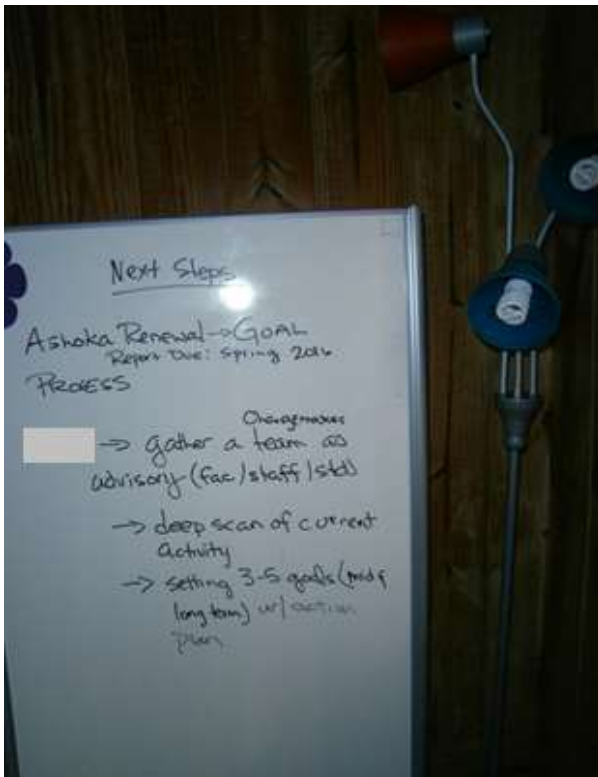 Next Steps
Ashoka Renewal → GOAL
Report Due: Spring 2016
PROCESS
Changemakers
→ gather a team as
advisory (fac/staff/std)
→ deep scan of current
activity
→ setting 3-5 goals (mid &
long term) w/ action
plan